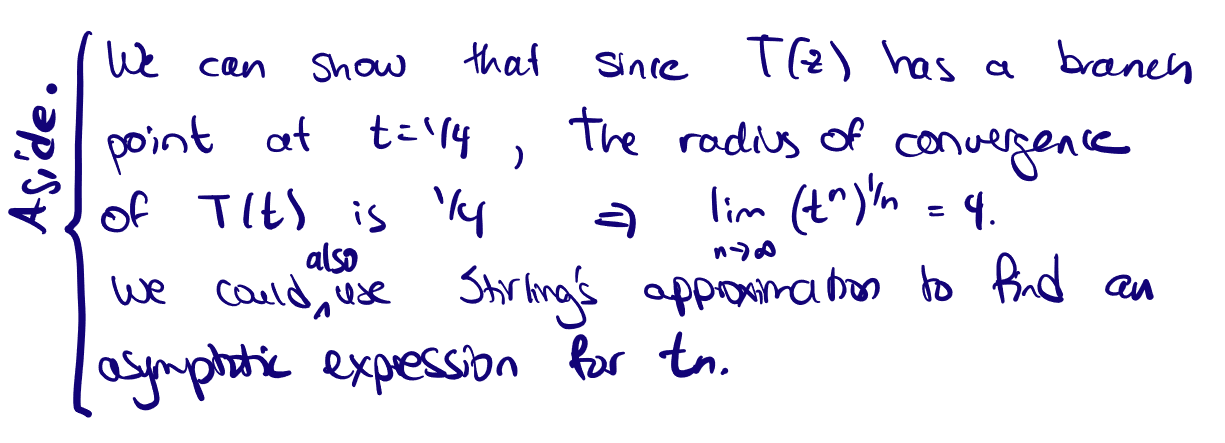 Aside.
We can show that since T(z) has a branch
point at t=1/4, the radius of convergence
of T(t) is 1/4 ⇒ lim n→∞ (tⁿ)^1/n = 4.
We could ‸also use Stirling's approximation to find an
asymptotic expression for tn.